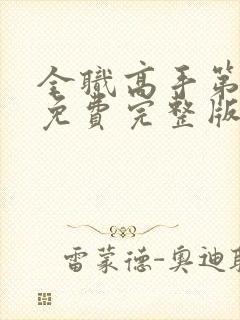 全職高手第
免費完整版
雷蒙德-奧迪